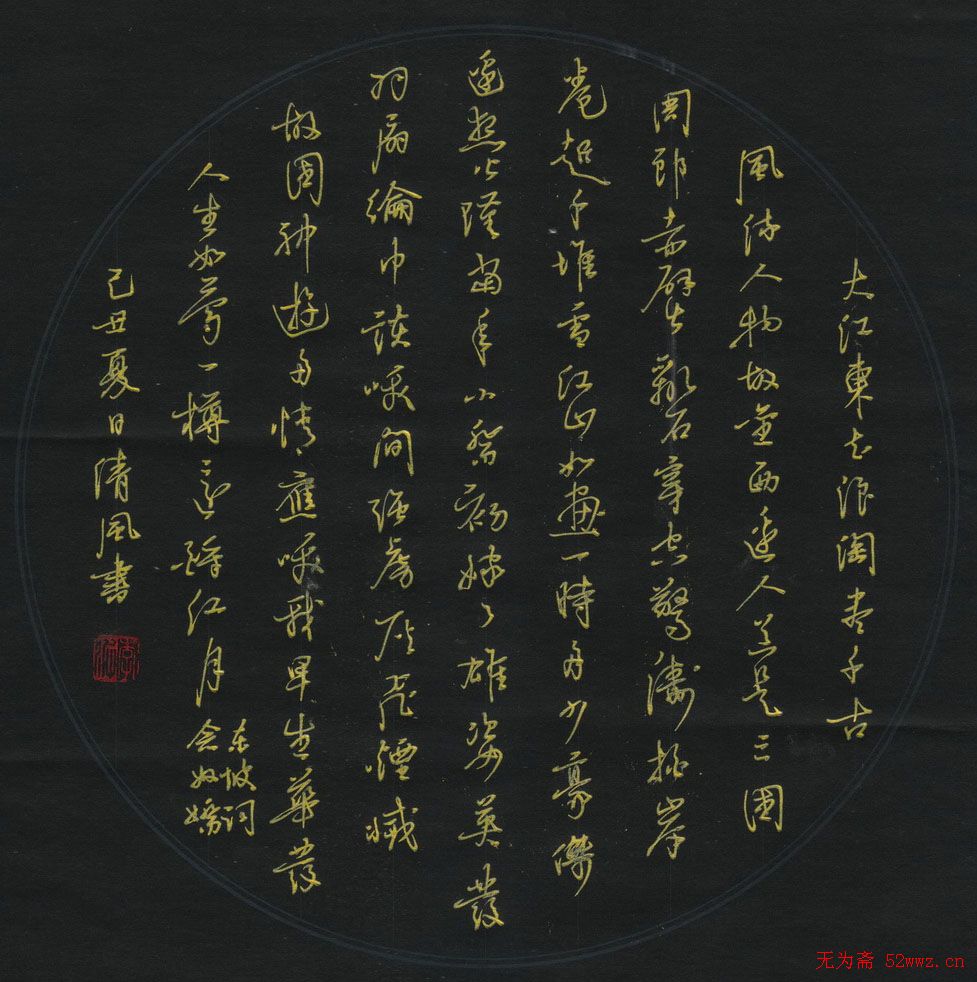 大江東去浪淘盡千古
風流人物故壘西邊人道是三國
周郎赤壁亂石穿空驚濤拍岸
卷起千堆雪江山如畫一時多少豪傑
遙想公瑾當年小喬初嫁了雄姿英發
羽扇綸巾談咲間強虜灰飛煙滅
故國神遊多情應咲我早生華發
人生如夢一樽還酹江月
东坡词
念奴嬌
己丑夏日清風書
无为斋 52wwz.cn